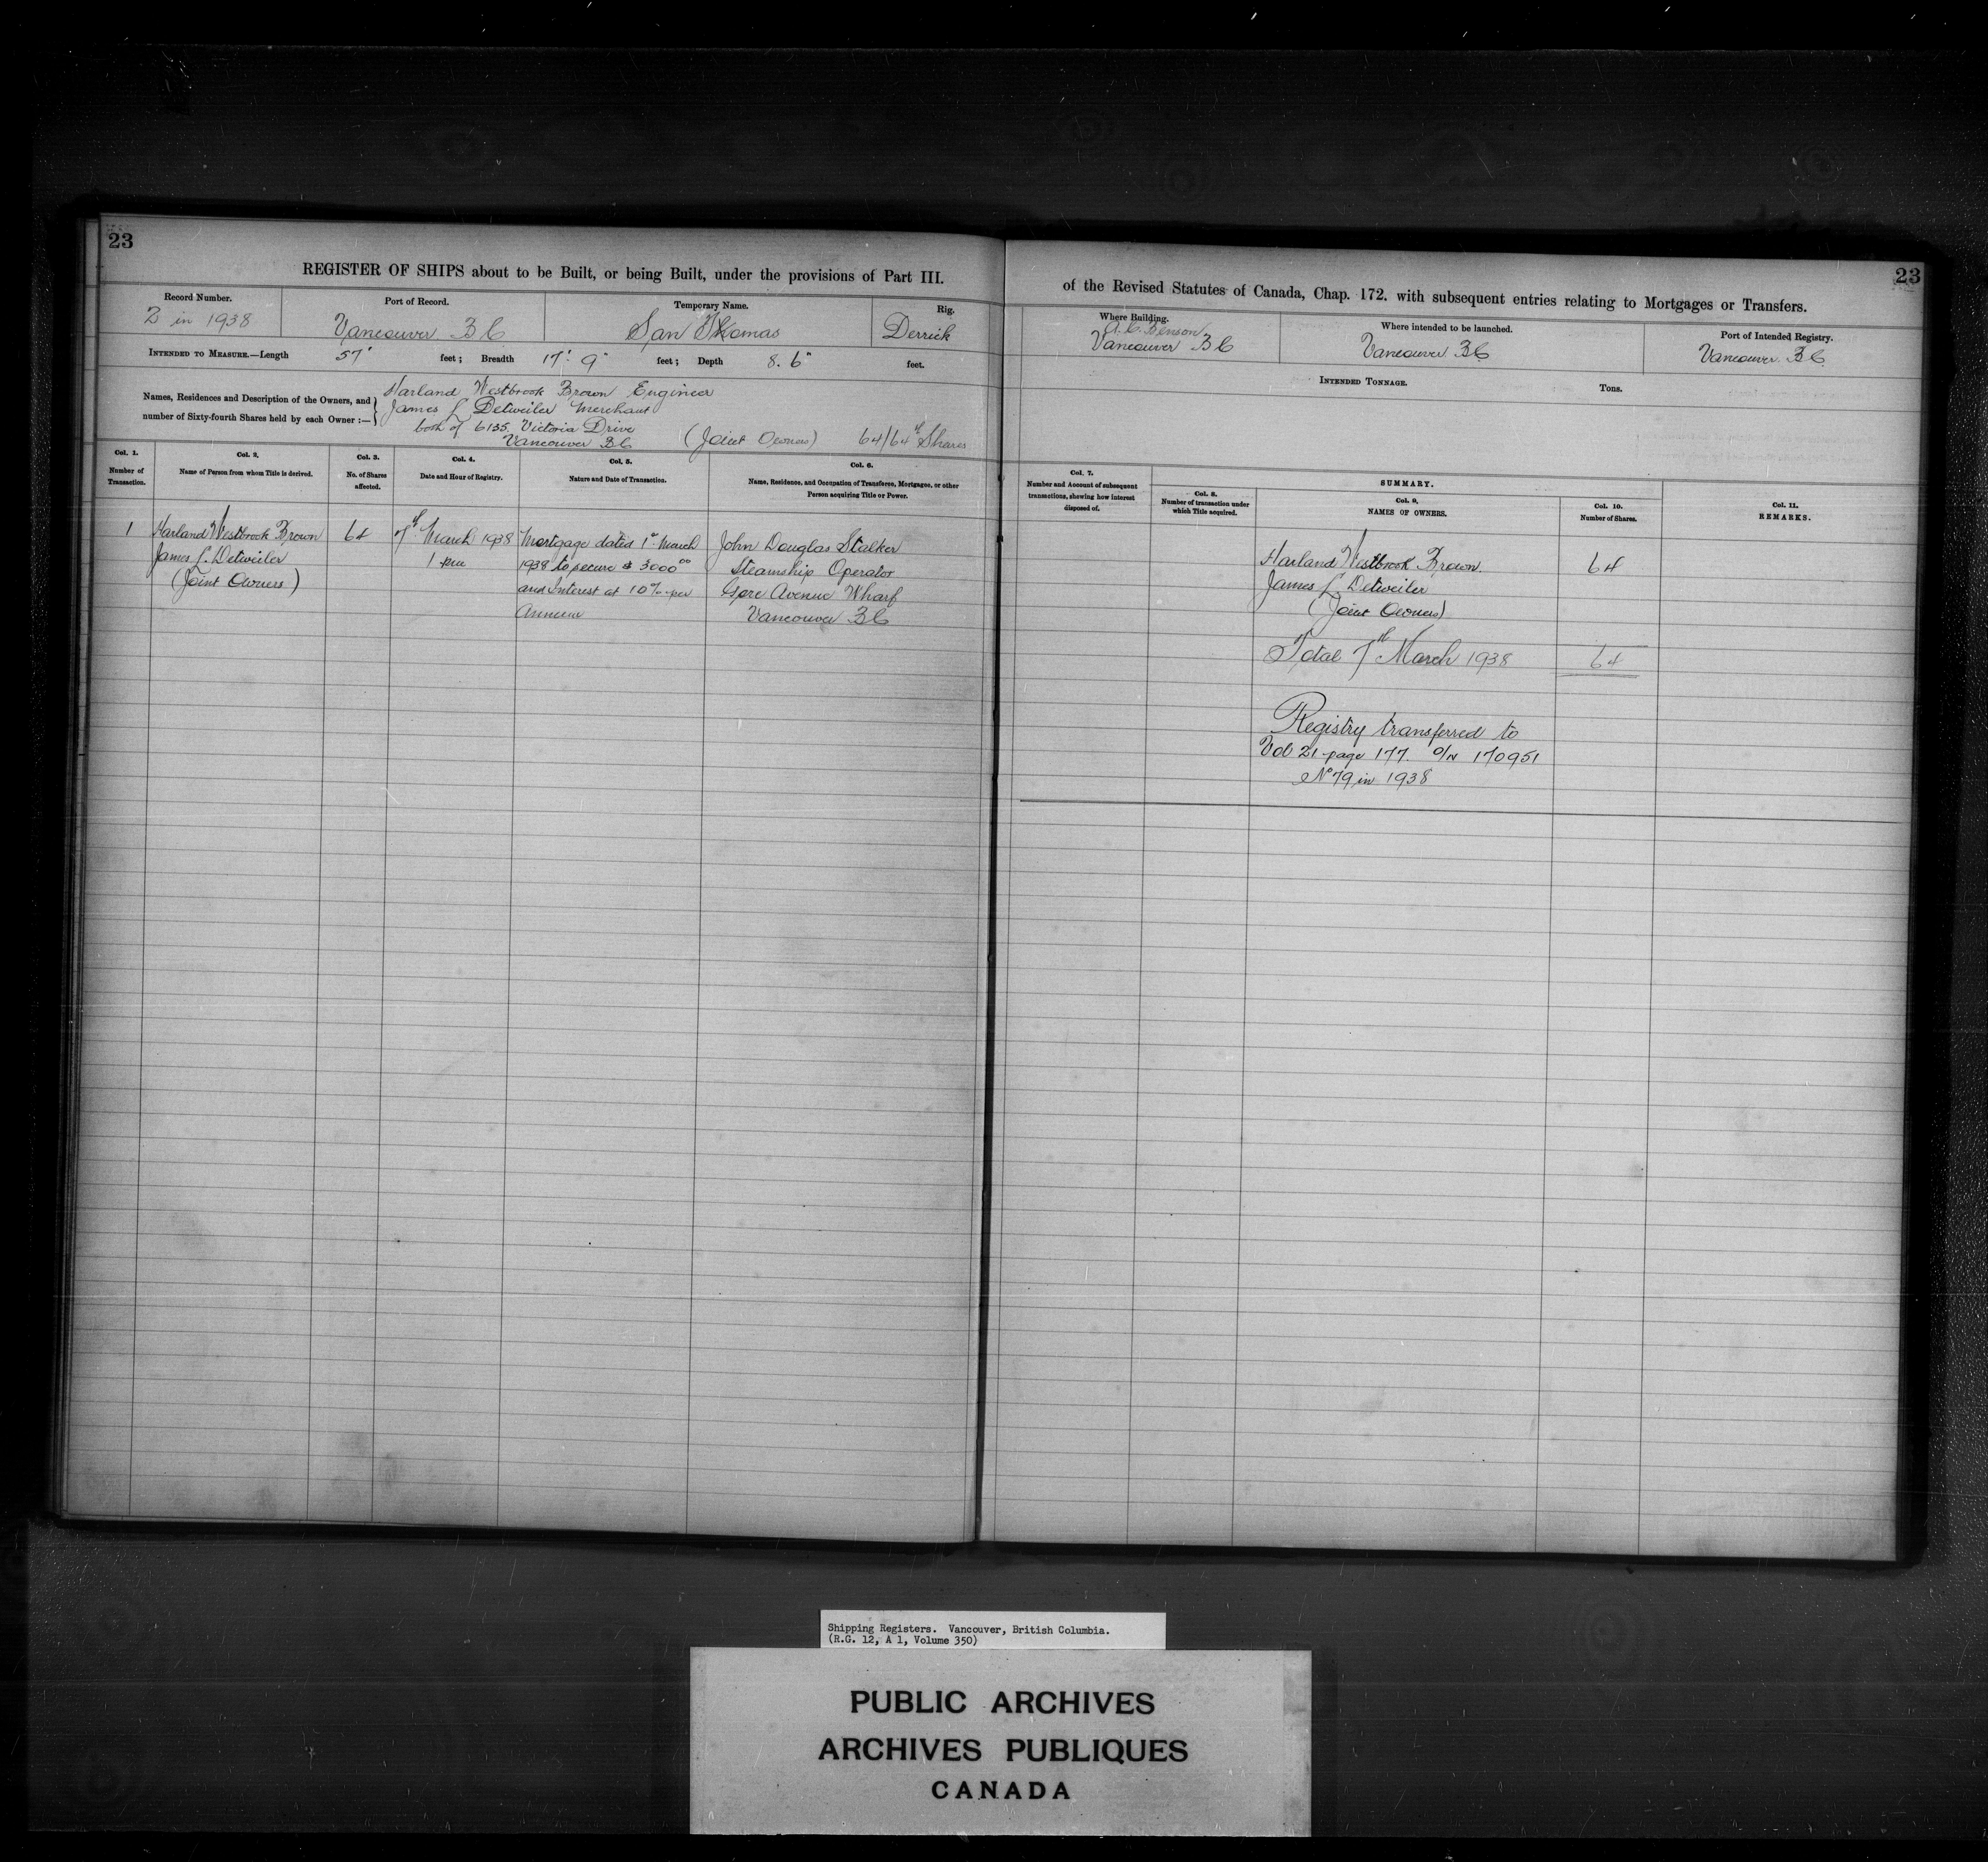 23
REGISTER OF SHIPS about to be Built, or being Built, under the provisions of Part III.
Record Number.
2 in 1938
Port of Record.
Vancouver B C
Temporary Name.
San Thomas
Rig.
Derrick
INTENDED TO MEASURE.—Length 57' feet; Breadth 17' 9" feet; Depth 8. 6" feet.
Names, Residences and Description of the Owners, and
number of Sixty-fourth Shares held by each Owner:—
Harland Westbrook Brown Engineer
James L Detweiler Merchant
both of 6135 Victoria Drive
Vancouver BC (Joint Owners) 64/64th Shares
Col. 1.
Number of
Transaction.
Col. 2.
Name of Person from whom Title is derived.
Col. 3.
No. of Shares
affected.
Col. 4.
Date and Hour of Registry.
Col. 5.
Nature and Date of Transaction.
Col. 6.
Name, Residence, and Occupation of Transferee, Mortgagee, or other
Person acquiring Title or Power.
1
Harland Westbrook Brown
James L. Detweiler
(Joint Owners)
64
7th March 1938
1 pm
Mortgage dated 1st March
1938 to secure $ 3000 00
and Interest at 10% per
Annum
John Douglas Stalker
Steamship Operator
Gore Avenue Wharf
Vancouver B C
23
of the Revised Statutes of Canada, Chap. 172. with subsequent entries relating to Mortgages or Transfers.
Where Building.
A. C. Benson
Vancouver B C
Where intended to be launched.
Vancouver BC
Port of Intended Registry.
Vancouver B.C.
INTENDED TONNAGE. Tons.
Col. 7.
Number and Account of subsequent
transactions, shewing how interest
disposed of.
SUMMARY.
Col. 8.
Number of transaction under
which Title acquired.
Col. 9.
NAMES OF OWNERS.
Col. 10.
Number of Shares.
Col. 11.
REMARKS.
Harland Westbrook Brown.
James L. Detweiler
(Joint Owners)
64
Total 7th March 1938 64
Registry transferred to
Vol 21 page 177. O/N 170951
No 79 in 1938
Shipping Registers. Vancouver, British Columbia.
(R.G. 12, A 1, Volume 350)
PUBLIC ARCHIVES
ARCHIVES PUBLIQUES
CANADA